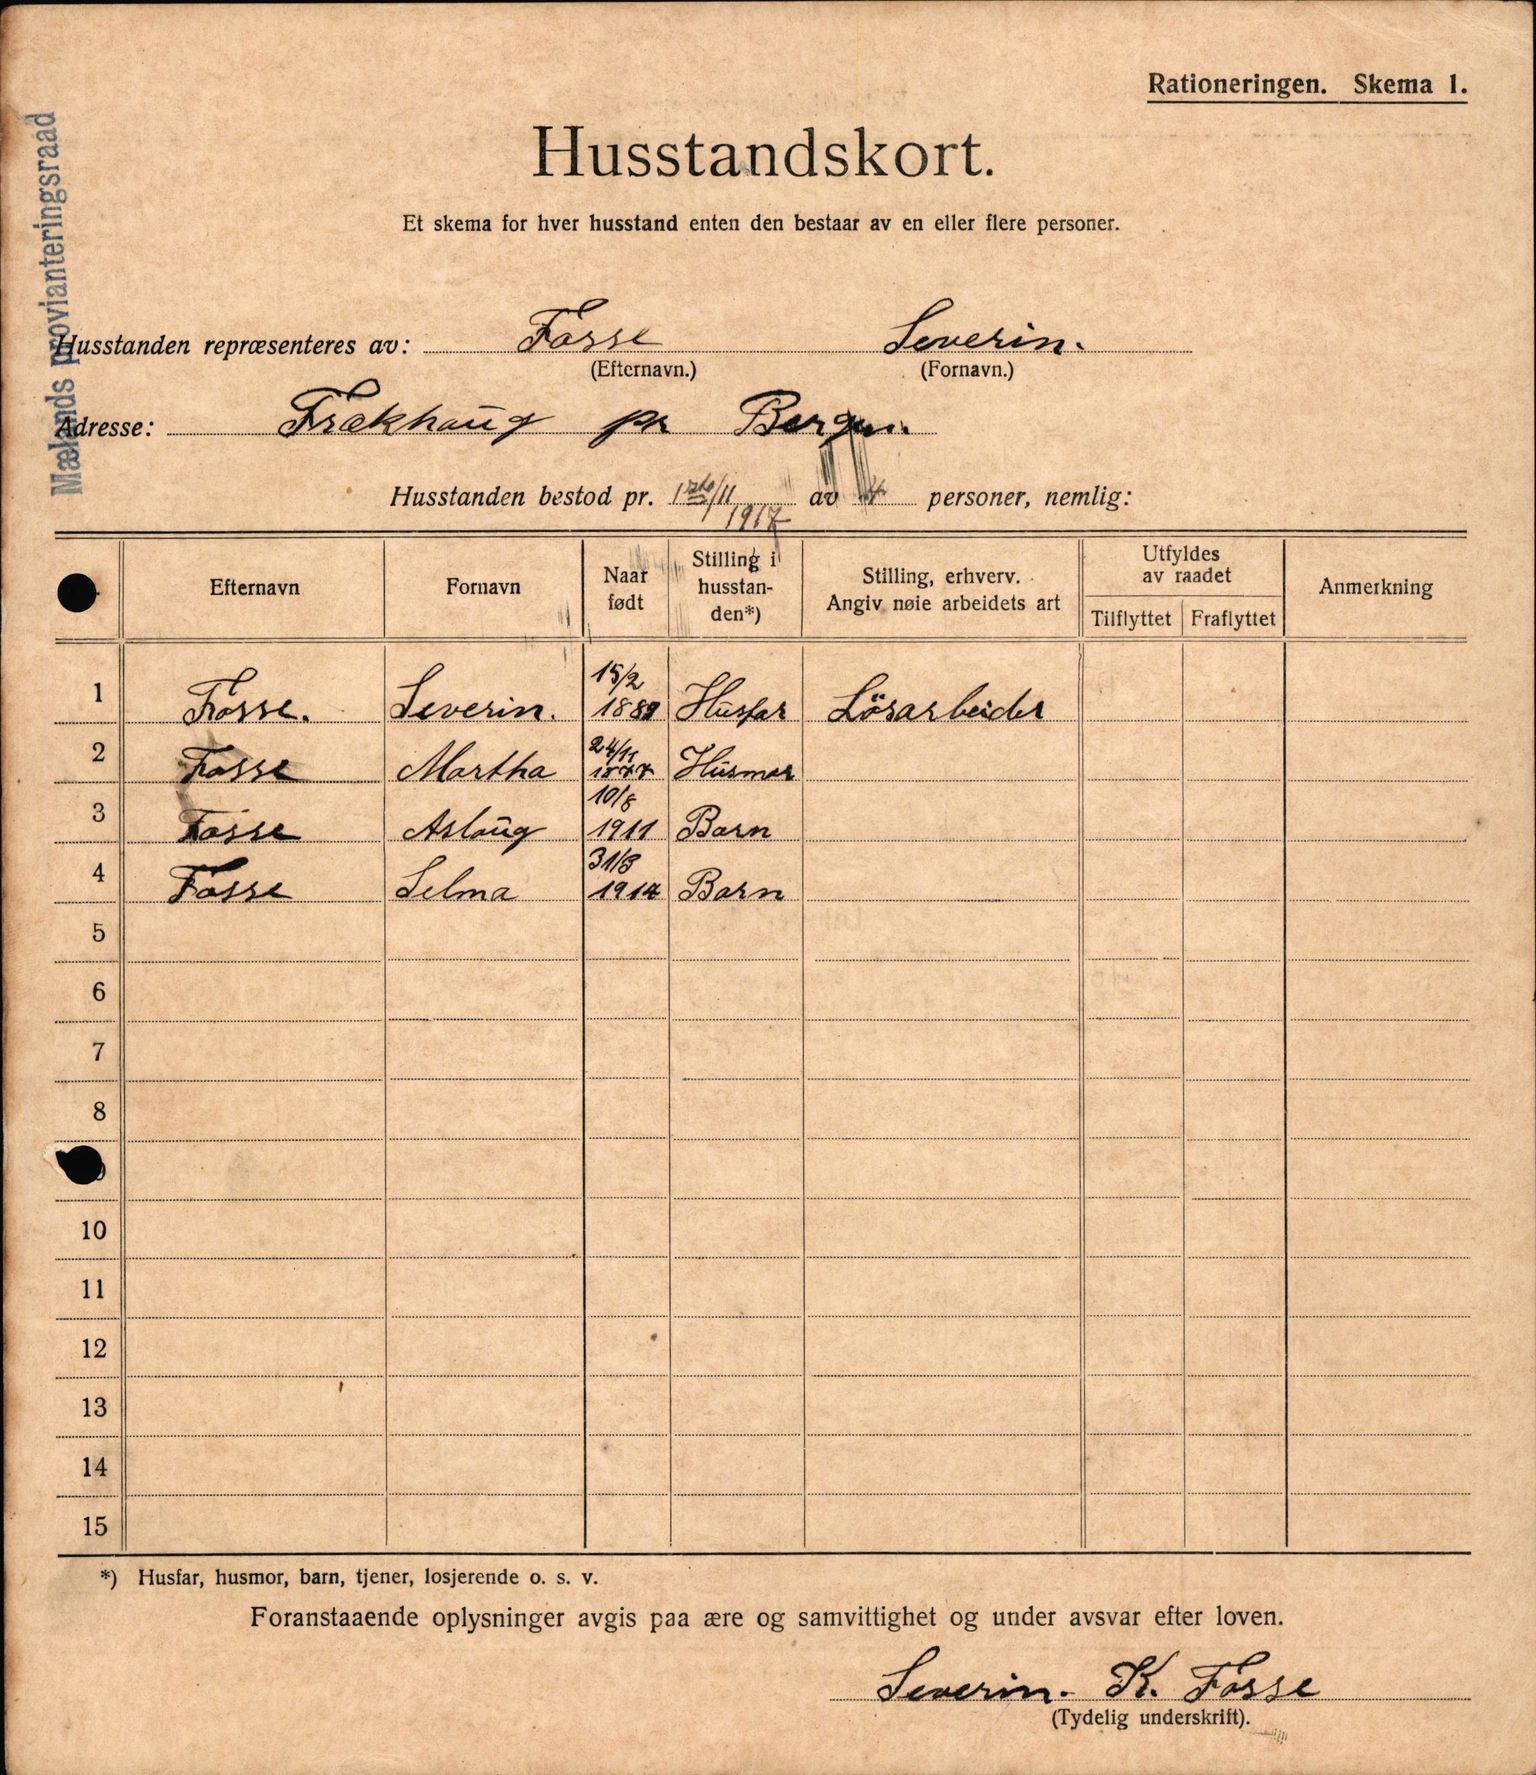 Rationeringen. Skema 1.
Mælands provianteringsraad
Husstandskort.
Et skema for hver husstand enten den bestaar av en eller flere personer.
Husstanden repræsenteres av: Fosse Severin.
(Efternavn.) (Fornavn.)
Adresse: Frækhaug pr Bergen.
Husstanden bestod pr. 1ste/11 1917 av 4 personer, nemlig:
Efternavn Fornavn Naar født Stilling i husstanden*) Stilling, erhverv. Angiv nøie arbeidets art Utfyldes av raadet Tilflyttet Fraflyttet Anmerkning
1 Fosse. Severin. 15/2 1889 Husfar Lösarbeider
2 Fosse Martha 24/11 1877 Husmor
3 Fosse Aslaug 10/8 1911 Barn
4 Fosse Selma 31/8 1914 Barn
5
6
7
8
10
11
12
13
14
15
*) Husfar, husmor, barn, tjener, losjerende o. s. v.
Foranstaaende oplysninger avgis paa ære og samvittighet og under avsvar efter loven.
Severin. K. Fosse
(Tydelig underskrift).